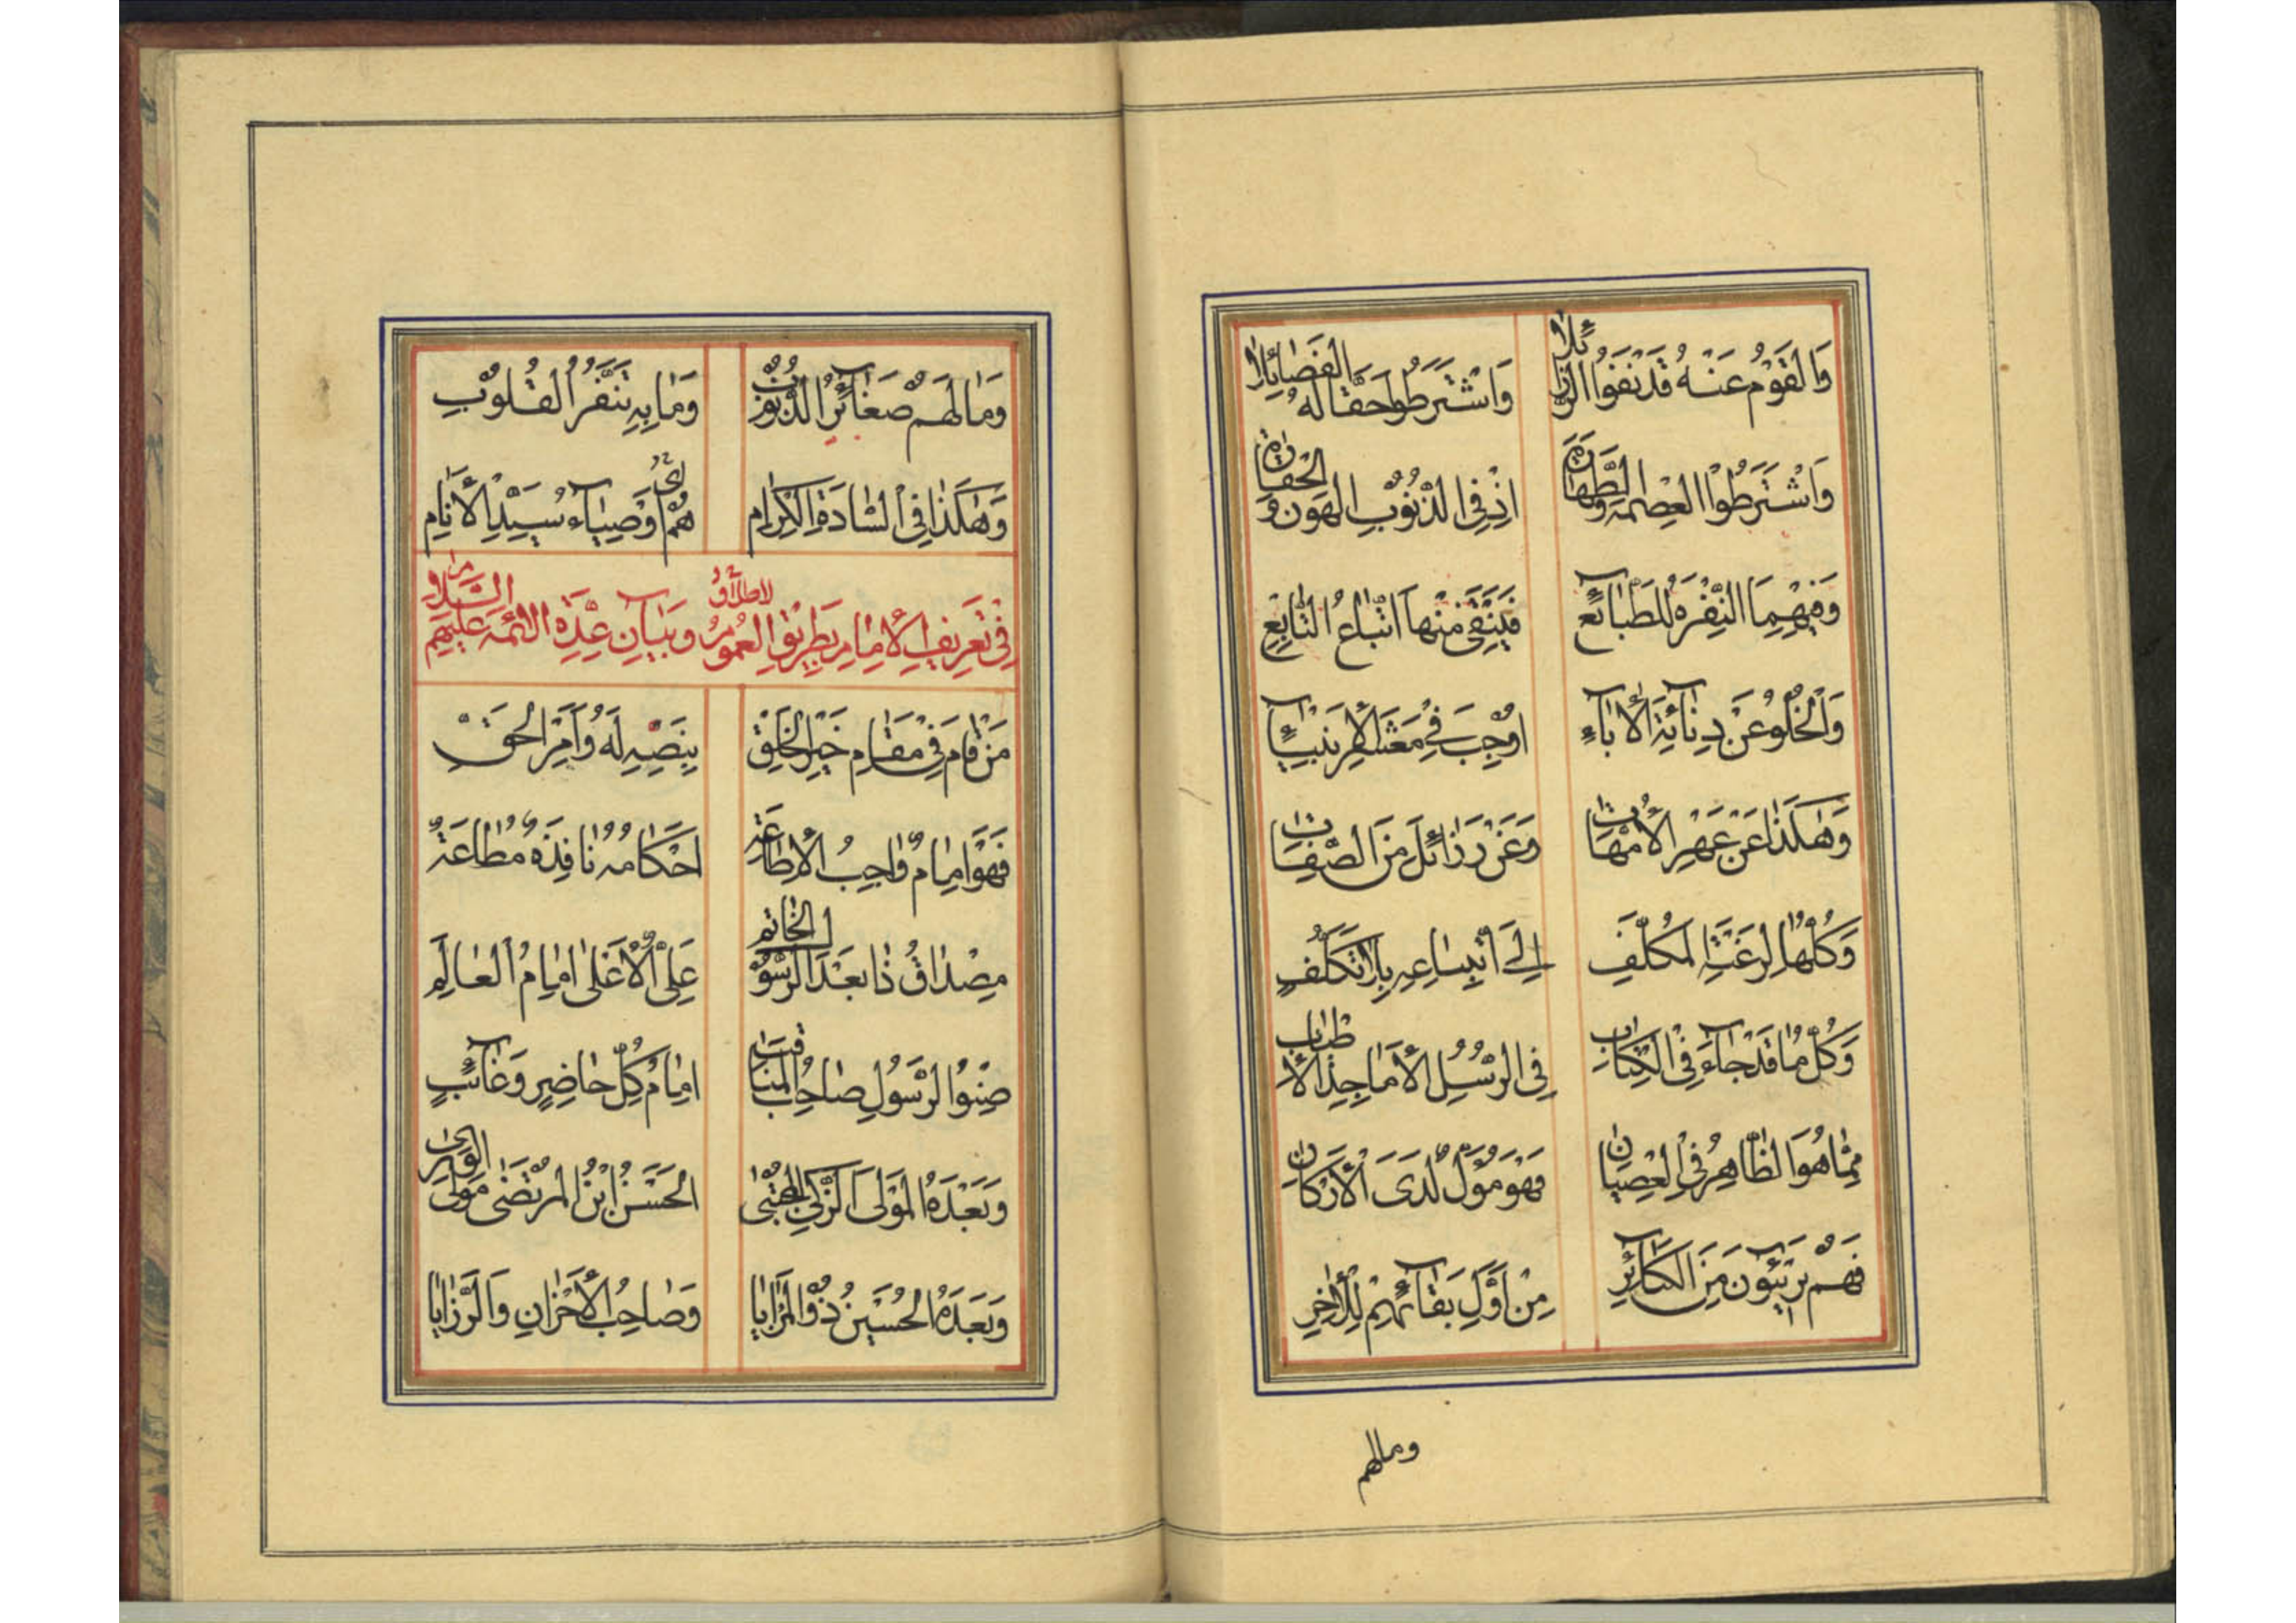 وَالقَوْمُ عَنْهُ قَدْ نَفَوُا الرَّذَائِلَا وَاشْتَرَطُوا حَقًّا لَهُ الْفَضَائِلَا
وَاشْتَرَطُوا العِصْمَةَ وَالطَّهَارَة اِذْ فِي الذُّنُوبِ الهَوْنُ وَالحَقَارَة
وَفِيهِمَا النَّفْرَةُ لِلطَّبَائِعِ فَيَنْتَفِي مِنْهَا اتِّبَاعُ التَّابِعِ
وَالْخُلُوُّ عَنْ دِنَائَةِ الْآبَاءِ اُوْجِبَ فِي مَعْشَرِ الْأَنْبِيَاءِ
وَهٰكَذَا عَنْ عَهْرِ الْأُمَّهَاتِ وَعَنْ رَذَائِلَ مِنَ الصِّفَاتِ
وَكُلُّهَا لِرَغْبَةِ المُكَلَّفِ اِلَى اتِّبَاعِهِ بِلَا تَكَلُّفِ
وَكُلُّ مَا قَدْ جَاءَ فِي الْكِتَابِ فِي الرُّسُلِ الْأَمَاجِدِ الْأَطْيَابِ
مِمَّا هُوَ الظَّاهِرُ فِي الْعِصْيَانِ فَهْوَ مُؤَوَّلٌ لَدَى الْأَرْكَانِ
فَهُمْ بَرِيئُونَ مِنَ الكَبَائِرِ مِنْ أَوَّلِ بَقَائِهِمْ لِلْآخِرِ
ومالهم
وَمَا لَهُمْ صَغَائِرُ الذُّنُوبِ وَمَا بِهِ تَنَفُّرُ القُلُوبِ
وَهٰكَذَا فِي السَّادَةِ الْكِرَامِ هُمْ أَوْصِيَاءُ سَيِّدِ الْأَنَامِ
فِي تَعْرِيفِ الْأِمَامِ بِطَرِيقِ العُمُومِ وَالاطلاق وَبَيَانِ عِدَّةِ الائمة عَلَيْهِمُ السَّلَام
مَنْ قَامَ فِي مَقَامِ خَيْرِ الخَلْقِ بِنَصِّهِ لَهُ وَأَمْرِ الحَقِّ
فَهْوَ اِمَامٌ وَاجِبُ الْاِطَاعَة اَحْكَامُهُ نَافِذَةٌ مُطَاعَة
مِصْدَاقُ ذَا بَعْدَ الرَّسُولِ الخَاتِمِ عَلِيٌّ الْأَعْلَى اِمَامُ العَالَمِ
صِنْوُ الرَّسُولِ صَاحِبُ المَنَاقِبِ اِمَامُ كُلِّ حَاضِرٍ وَغَائِبٍ
وَبَعْدَهُ المَوْلَى الزَّكِيُّ المُجْتَبَى الحَسَنُ ابْنُ المُرْتَضَى مَوْلَى الوَرَى
وَبَعْدَهُ الحُسَيْنُ ذُو المَزَايَا وَصَاحِبُ الْأَحْزَانِ وَالرَّزَايَا